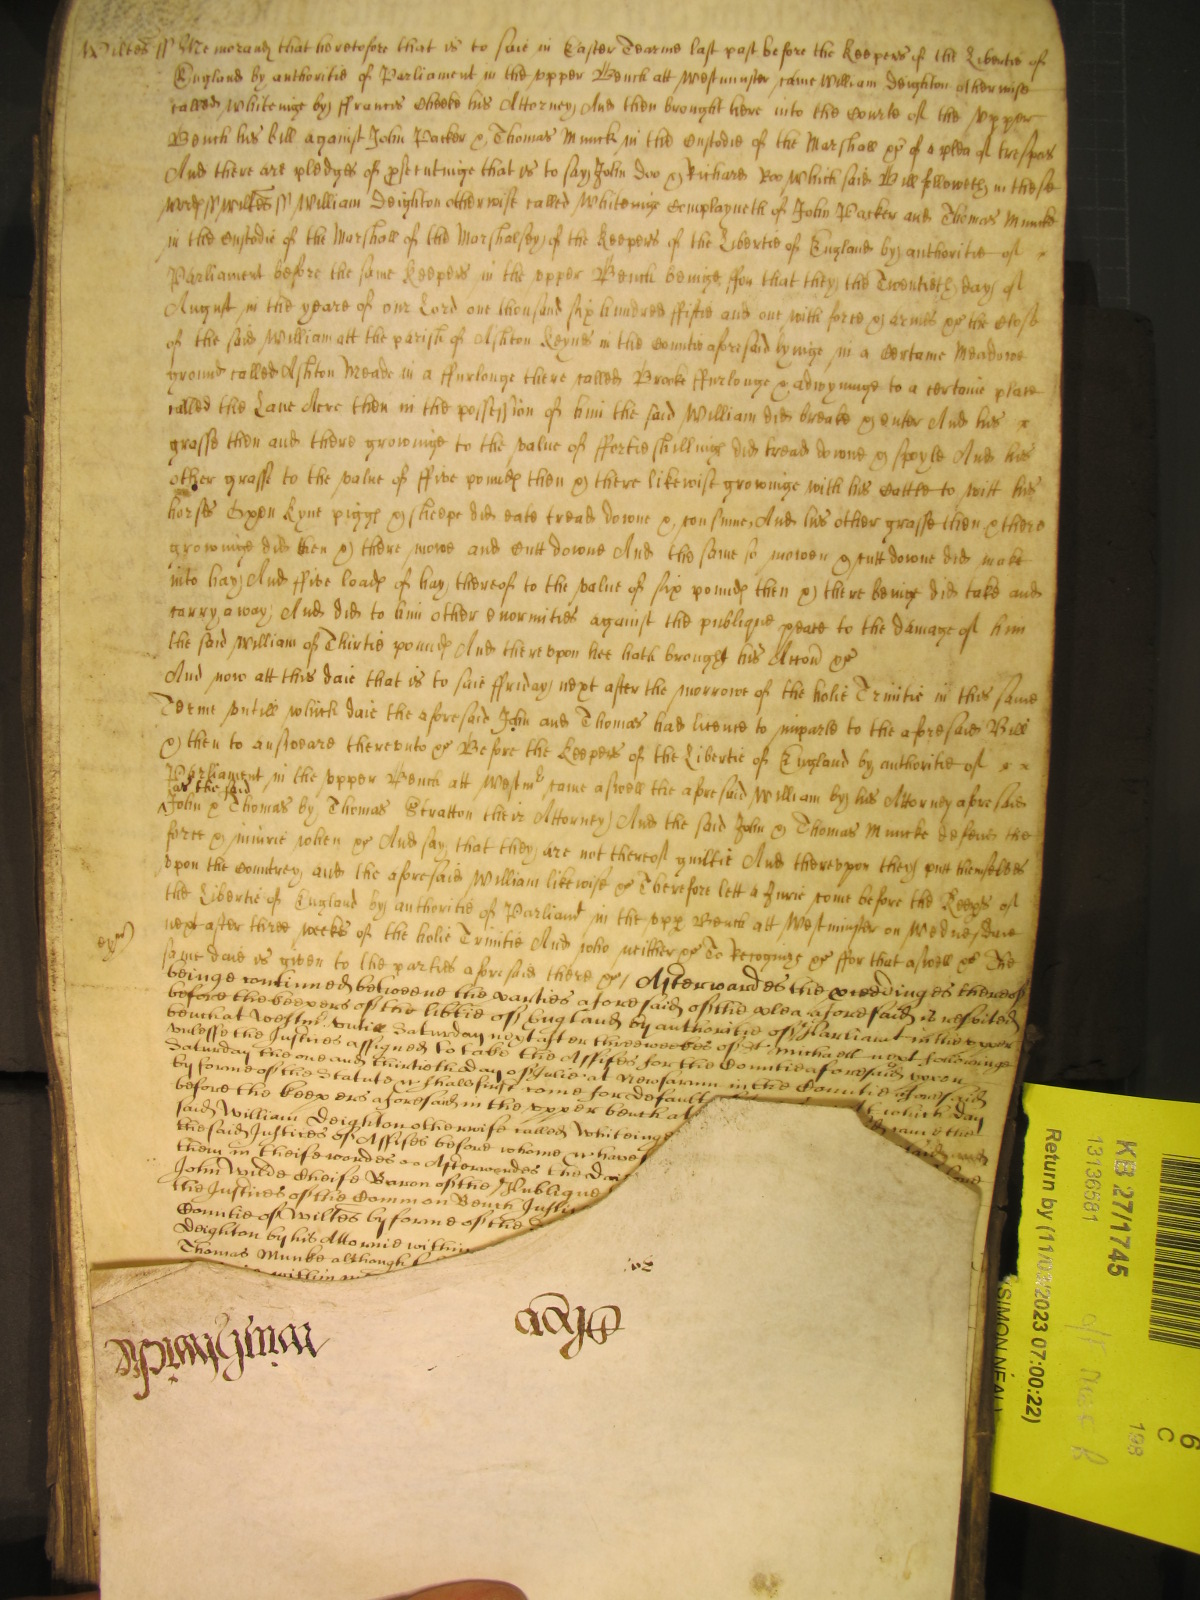 Wiltes ss Memorand that heretofore that is to saie in Easter Tearme last past before the Keepers of the Libertie of
England by authoritie of Parliament in the vpper Bench att Westminster came William Deighton otherwise
called Whiteinge by ffrancis Cheeke his Attorney And then brought here into the Courte of the vpper
Bench his bill against John Packer & Thomas Munck in the Custodie of the Marshall &c of a plea of trespas
And there are pledges of psecutinge that is to say John Doo & Richard Roo which said Bill followeth in these
words ss Wiltes ss William Deighton otherwise called Whiteinge complayneth of John Packer and Thomas Muncke
in the Custodie of the Marshall of the Marshalsey of the Keepers of the Libertie of England by authoritie of
Parliament before the same Keepers in the vpper Bench beinge ffor that they the Twentieth day of
August in the yeare of our Lord one thousand six hundred ffiftie and one with force & armes &c the Close
of the said William att the parish of Ashton Keynes in the Countie aforesaid lyinge in a Certaine Meadowe
ground called Ashton Meade in a ffurlonge there called Brooke ffurlonge & adioyninge to a certaine place
called the Lane Acre then in the possession of him the said William did breake & enter And his
grasse then and there growinge to the value of ffortie shillings did tread downe & spoyle And his
other grasse to the value of ffive pounds then & there likewise growinge with his Cattle to witt his
horses Oxen Kyne piggs & sheepe did eate tread downe & consume, And his other grasse then & there
growinge did then & there mowe and Cutt downe And the same so mowen & cutt downe did make
into hay And ffive loads of hay thereof to the value of six pounds then & there beinge did take and
carry away, And did to him other enormities against the publique peace to the damage of him
the said William of Thirtie pounds And therevpon hee hath brought his Accon &c
And now att this daie that is to saie ffriday next after the morrowe of the holie Trinitie in this same
Terme vntill which daie the aforesaid John and Thomas had licence to imparle to the aforesaid Bill
& then to answeare therevnto &c Before the Keepers of the Libertie of England by authoritie of
Parliament in the vpper Bench att Westmr came aswell the aforesaid William by his Attorney aforesaid
as the said
John & Thomas by Thomas Stratton their Attorney And the said John & Thomas Muncke defend the
force & iniurie when &c And say that they are not thereof guiltie And therevpon they put themselves
vpon the Countrey, and the aforesaid William likewise &c Therefore lett a Jurie come before the Keeps of
the Libertie of England by authoritie of Parliamt in the vpp Bench att Westminster on Wednesdaie
next after three weeks of the holie Trinitie And who neither &c To Recognize &c ffor that aswell &c The
same daie is given to the parties aforesaid there &c / Afterwardes the pceedinges thereof
beinge continued betweene the parties aforesaid of the plea aforesaid is respited
before the keepers of the libtie of England by authoritie of Parliamt in the vpper
bench at Westmr vntill Saturday next after three weekes of St Michaell next followinge
vnlesse the Justices assigned to take the Assises for the Countie aforesaid vpon
Saturday the one and thirtieth day of Julie at Newsarum in the Countie aforesaid
by forme of the Statute &c shall first come for default
before the keepers aforesaid in the vpper bench at which day
said William Deighton otherwise called Whiteinge came the
the said Justices of Assises before whome &c have
them in theise wordes ss Afterwardes the day
John Wilde Cheife Baron of the Publique
the Justices of the Common Bench Justic
Countie of Wiltes by forme of the
Deighton by his Attornie within
Thomas Munke although
within
KB 27/1745
13136581
Return by (11/03/2023 07:00:22)
(SIMON NEAL)
198
6
C